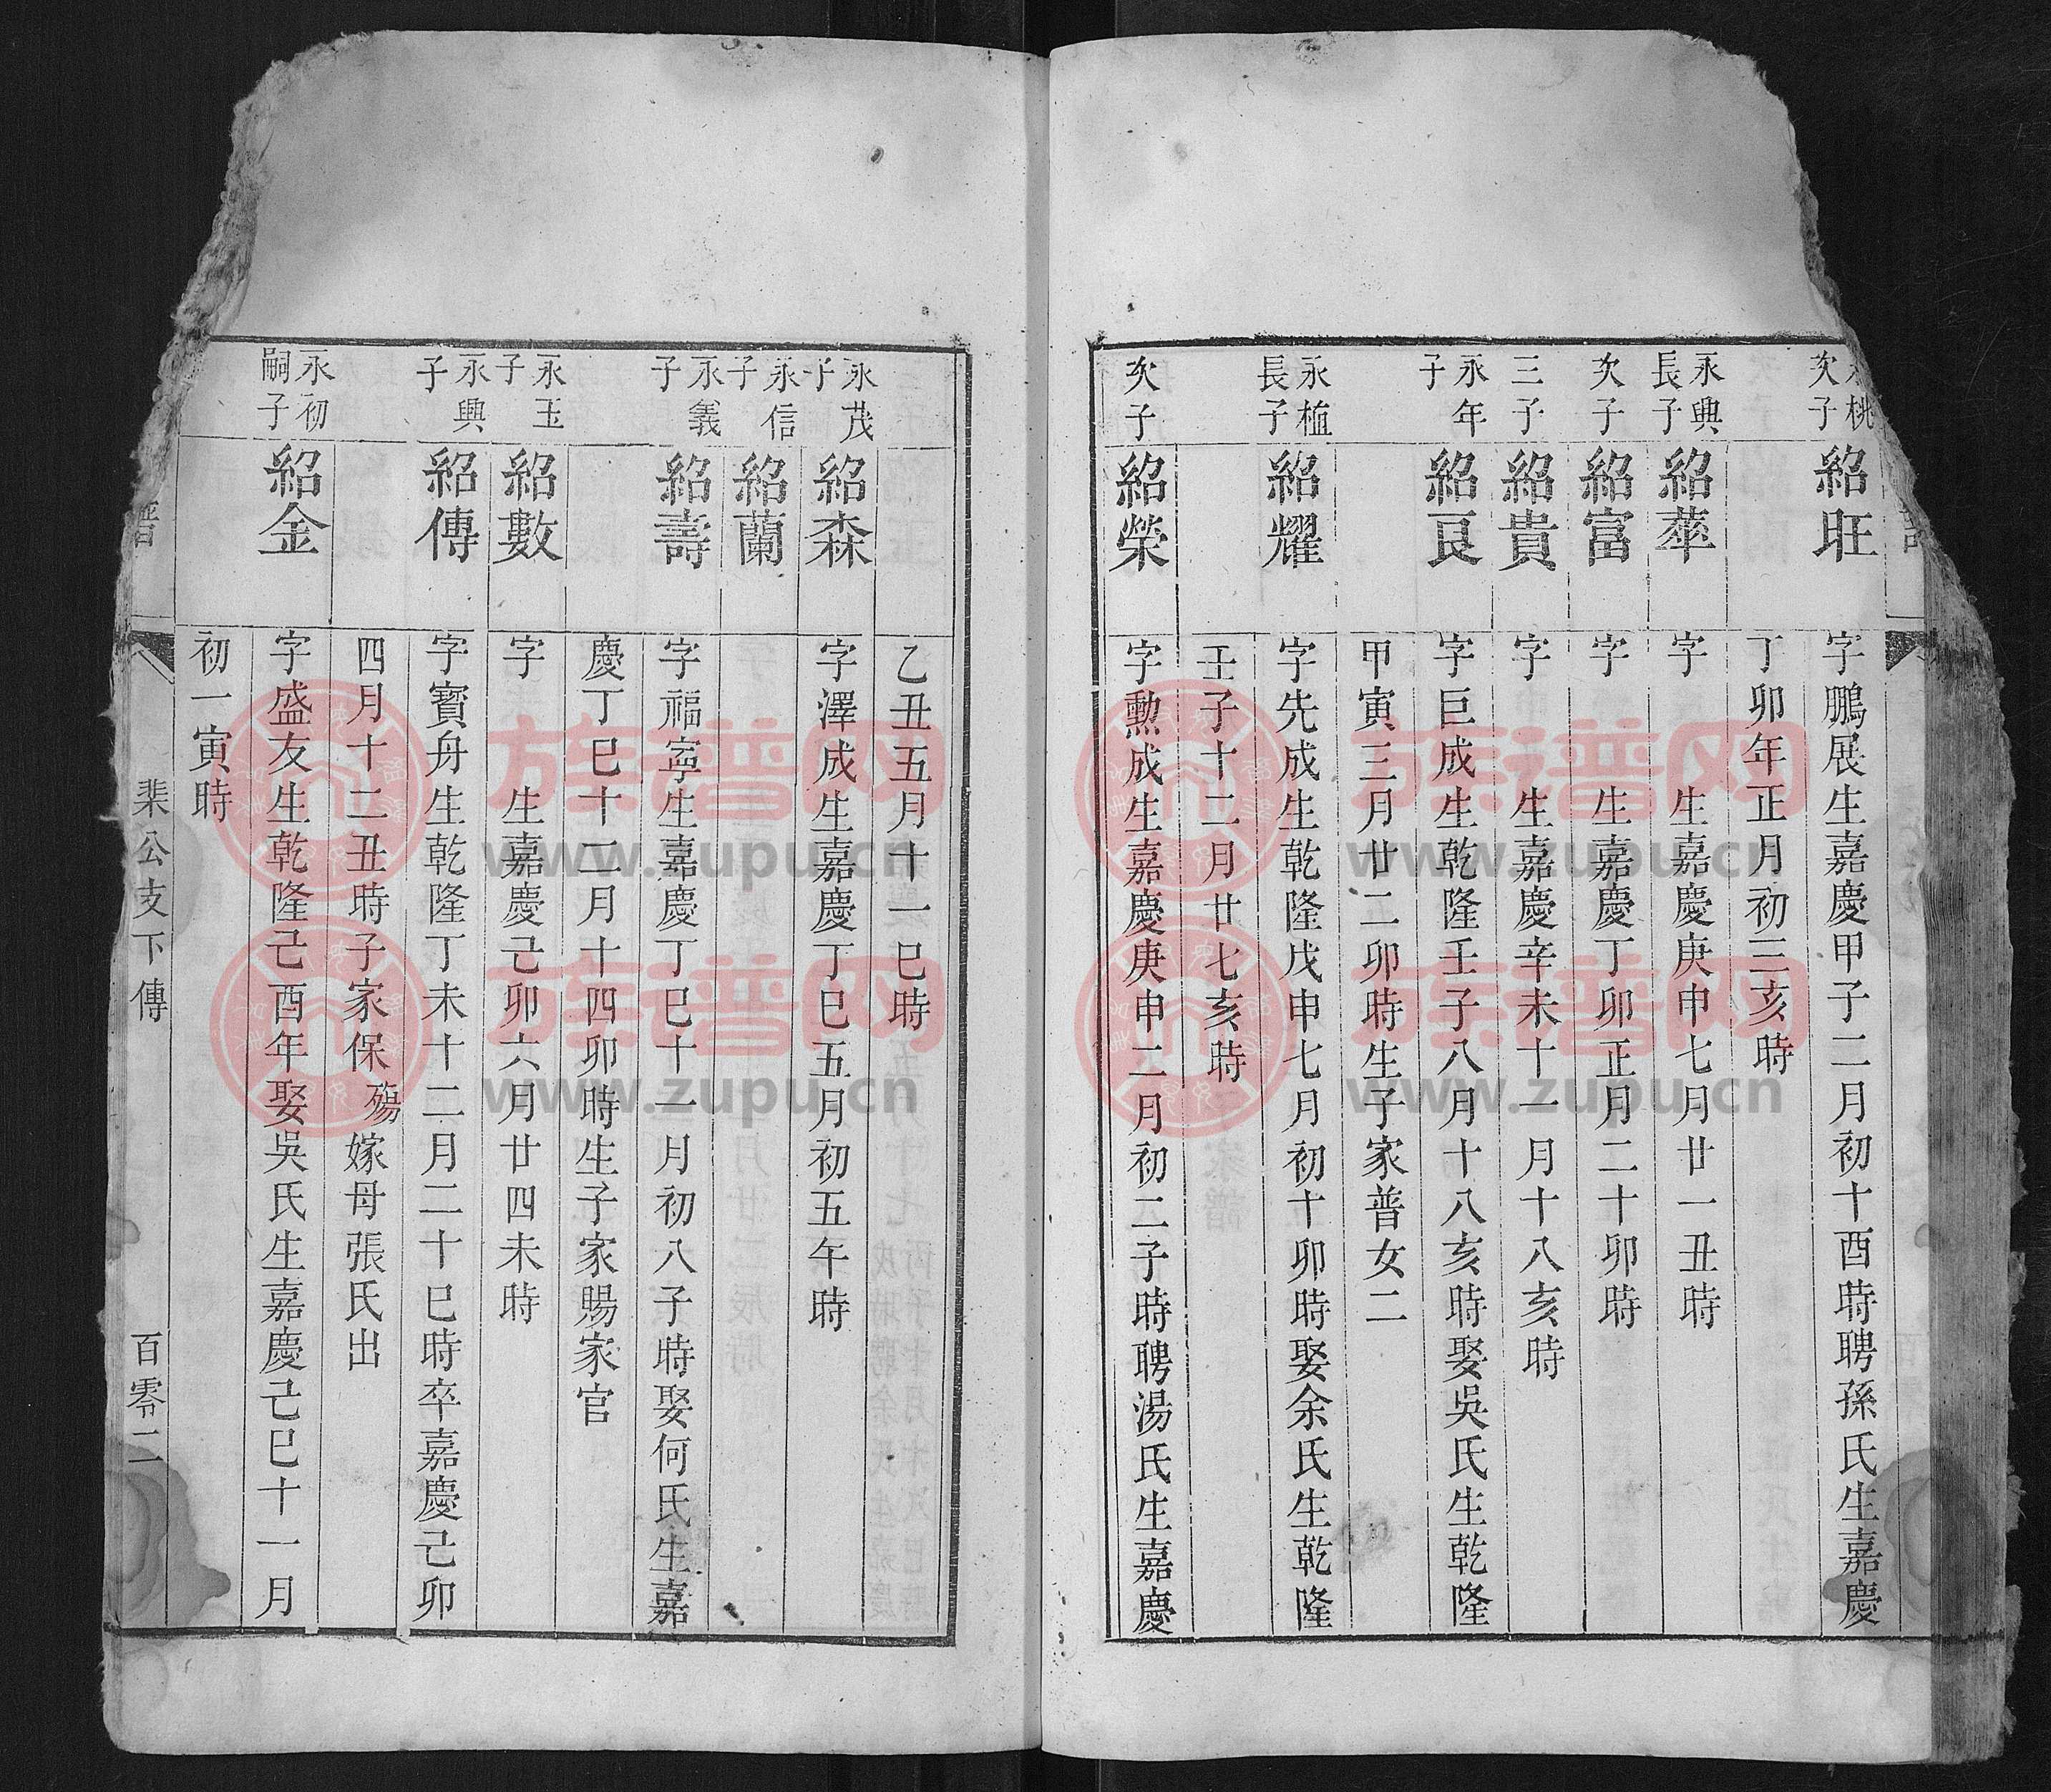 永桃次子 紹旺 字鵬展生嘉慶甲子二月初十酉時聘孫氏生嘉慶
丁卯年正月初三亥時
永興長子 紹萃 字 生嘉慶庚申七月廿一丑時
次子 紹富 字 生嘉慶丁卯正月二十卯時
三子 紹貴 字 生嘉慶辛未十一月十八亥時
永年子 紹良 字巨成生乾隆壬子八月十八亥時娶吳氏生乾隆
甲寅三月廿二卯時生子家普女二
永植長子 紹耀 字先成生乾隆戊申七月初十卯時娶余氏生乾隆
壬子十二月廿七亥時
次子 紹榮 字勲成生嘉慶庚申二月初二子時聘湯氏生嘉慶
乙丑五月十一巳時
永茂子 紹森 字澤成生嘉慶丁巳五月初五午時
永信子 紹蘭
永義子 紹壽 字福寧生嘉慶丁巳十一月初八子時娶何氏生嘉
慶丁巳十二月十四卯時生子家賜家官
永玉子 紹數 字 生嘉慶己卯六月廿四未時
永興子 紹傳 字寶舟生乾隆丁未十二月二十巳時卒嘉慶己卯
四月十二丑時子家保殤嫁母張氏出
永初嗣子 紹金 字盛友生乾隆己酉年娶吳氏生嘉慶己巳十一月
初一寅時
譜 棐公支下傳 百零二
族譜网
www.zupu.cn
族譜网
www.zupu.cn
族譜网
www.zupu.cn
族譜网
www.zupu.cn